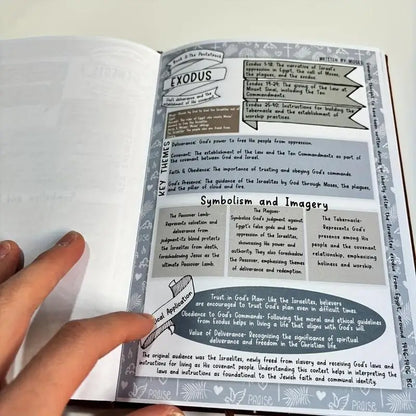 Book 2: The Pentateuch
WRITTEN BY: MOSES
EXODUS
God's deliverance and the
establishment of His covenant
Exodus 1-18: The narrative of Israel's
oppression in Egypt, the call of Moses,
the plagues, and the exodus
Exodus 19-24: The giving of the Law at
Mount Sinai, including the Ten
Commandments
Exodus 25-40: Instructions for building the
Tabernacle and the establishment of
worship practices
KEY THEMES
Deliverance: God's power to free His people from oppression.
Covenant: The establishment of the Law and the Ten Commandments as part of
the covenant between God and Israel.
Faith & Obedience: The importance of trusting and obeying God's commands.
God's Presence: The guidance of the Israelites by God through Moses, the plagues,
and the pillar of cloud and fire.
Symbolism and Imagery
The Passover Lamb-
Represents salvation and
deliverance from
judgment-its blood protects
the Israelites from death,
foreshadowing Jesus as the
ultimate Passover Lamb.
The Plagues-
Symbolize God's judgment against
Egypt's false gods and their
oppression of the Israelites,
showcasing His power and
authority. They also foreshadow
the Passover, emphasizing themes
of deliverance and redemption.
The Tabernacle-
Represents God's
presence among His
people and the covenant
relationship, emphasizing
holiness and worship.
Application
Trust in God's Plan- Like the Israelites, believers
are encouraged to trust God's plan even in difficult times.
Obedience to God's Commands- Following the moral and ethical guidelines
from Exodus helps in living a life that aligns with God's will.
Value of Deliverance- Recognizing the significance of spiritual
deliverance and freedom in the Christian life.
The original audience was the Israelites, newly freed from slavery and receiving God's laws and
instructions for living as His covenant people. Understanding this context helps in interpreting the
laws and instructions as foundational to the Jewish faith and communal identity.
PRAISE
PRAISE